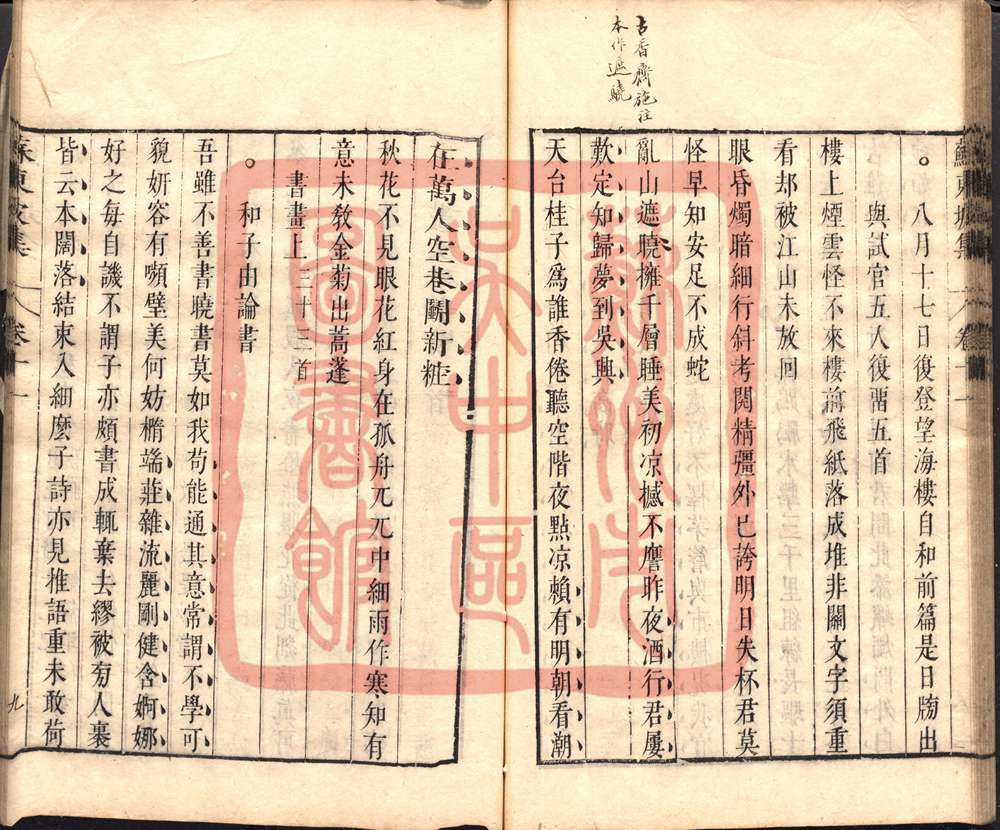 古香齋施注
本作遮曉
蘇東坡集 卷十一
八月十七日復登望海樓自和前篇是日牓出
與試官五人復畱五首
樓上煙雲怪不來樓前飛紙落成堆非關文字須重
看却被江山未放回
眼昏燭暗細行斜考閱精彊外已誇明日失杯君莫
怪早知安足不成蛇
亂山遮曉擁千層睡美初凉撼不譍昨夜酒行君屢
歎定知歸夢到吳興
天台桂子為誰香倦聽空階夜點凉賴有明朝看潮
在萬人空巷鬭新粧
秋花不見眼花紅身在孤舟兀兀中細雨作寒知有
意未敎金菊出蒿蓬
書畫上三十三首
和子由論書
吾雖不善書曉書莫如我苟能通其意常謂不學可
貌妍容有嚬璧美何妨橢端莊雜流麗剛健含婀娜
好之每自譏不謂子亦頗書成輒棄去繆被旁人裹
皆云本闊落結束入細麼子詩亦見推語重未敢荷
蘇東坡集 卷十一
九
蘇州市吳中區圖書館